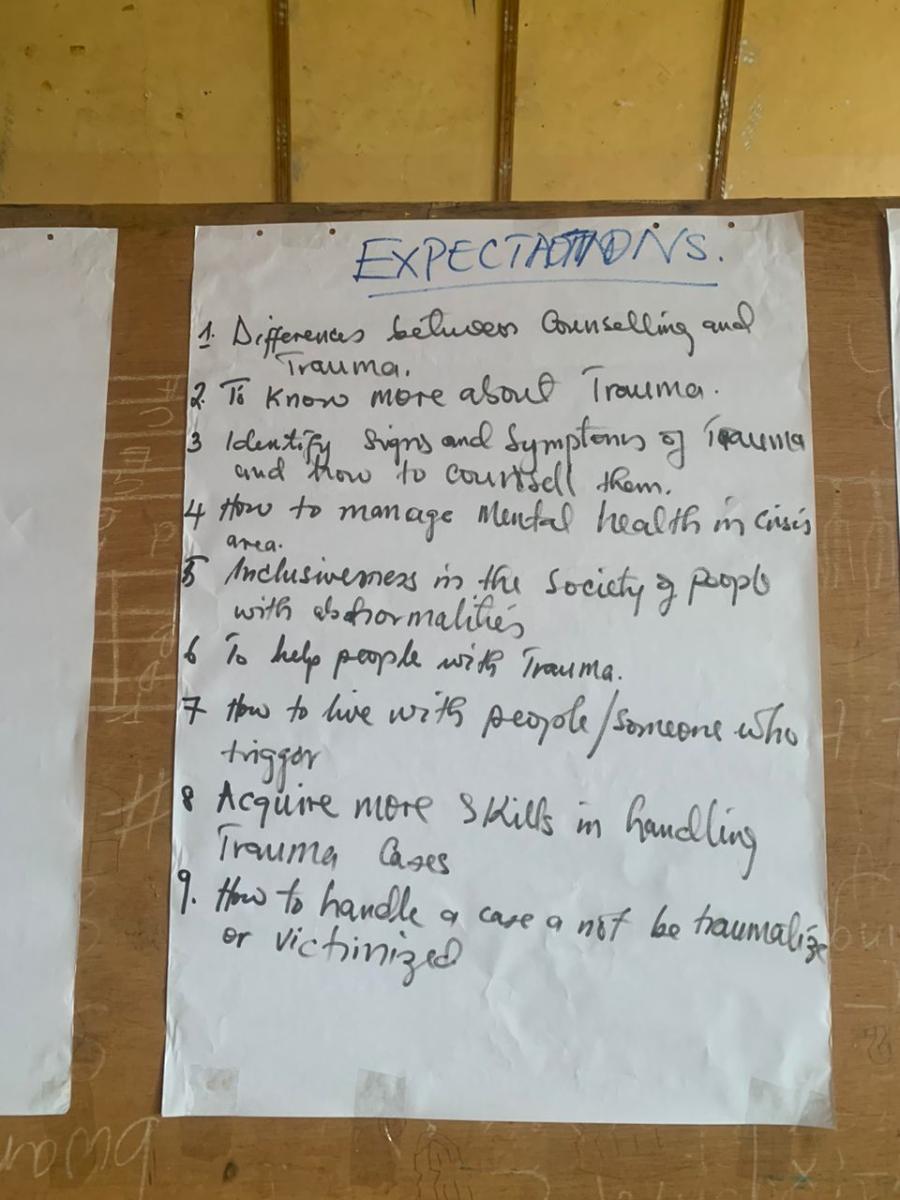 EXPECTATIONS.
1. Differences between Counselling and
Trauma.
2. To know more about Trauma.
3 Identify Signs and Symptoms of Trauma
and How to counsell them.
4 How to manage Mental health in Crisis
area.
5 Inclusiveness in the Society of people
with abnormalities
6 To help people with Trauma.
7 How to live with people/someone who
trigger
8 Acquire more Skills in handling
Trauma Cases
9. How to handle a case a not be traumalize
or victimized